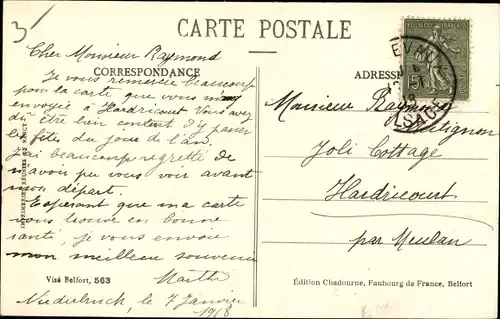 3
CARTE POSTALE
Cher Monsieur Raymond
CORRESPONDANCE
Je vous remercie beaucoup
pour la carte que vous m'avez
envoyée à Hardricourt Vous avez
dû être bien content d'y passer
les fêtes du jour de l'an.
J'ai beaucoup regretté de
n'avoir pas vous voir avant
mon départ.
Espérant que ma carte
vous trouve en bonne
santé, je vous envoie
mon meilleur souvenir
Marthe
Visé Belfort, 563
Niederbruck, le 7 Janvier
1918
IMPRIMERIES RÉUNIES DE NANCY
ADRESSE
15
ALSACE
Monsieur Raymond
Joli Cottage
Hardricourt
par Meulan
Édition Chadourne, Faubourg de France, Belfort